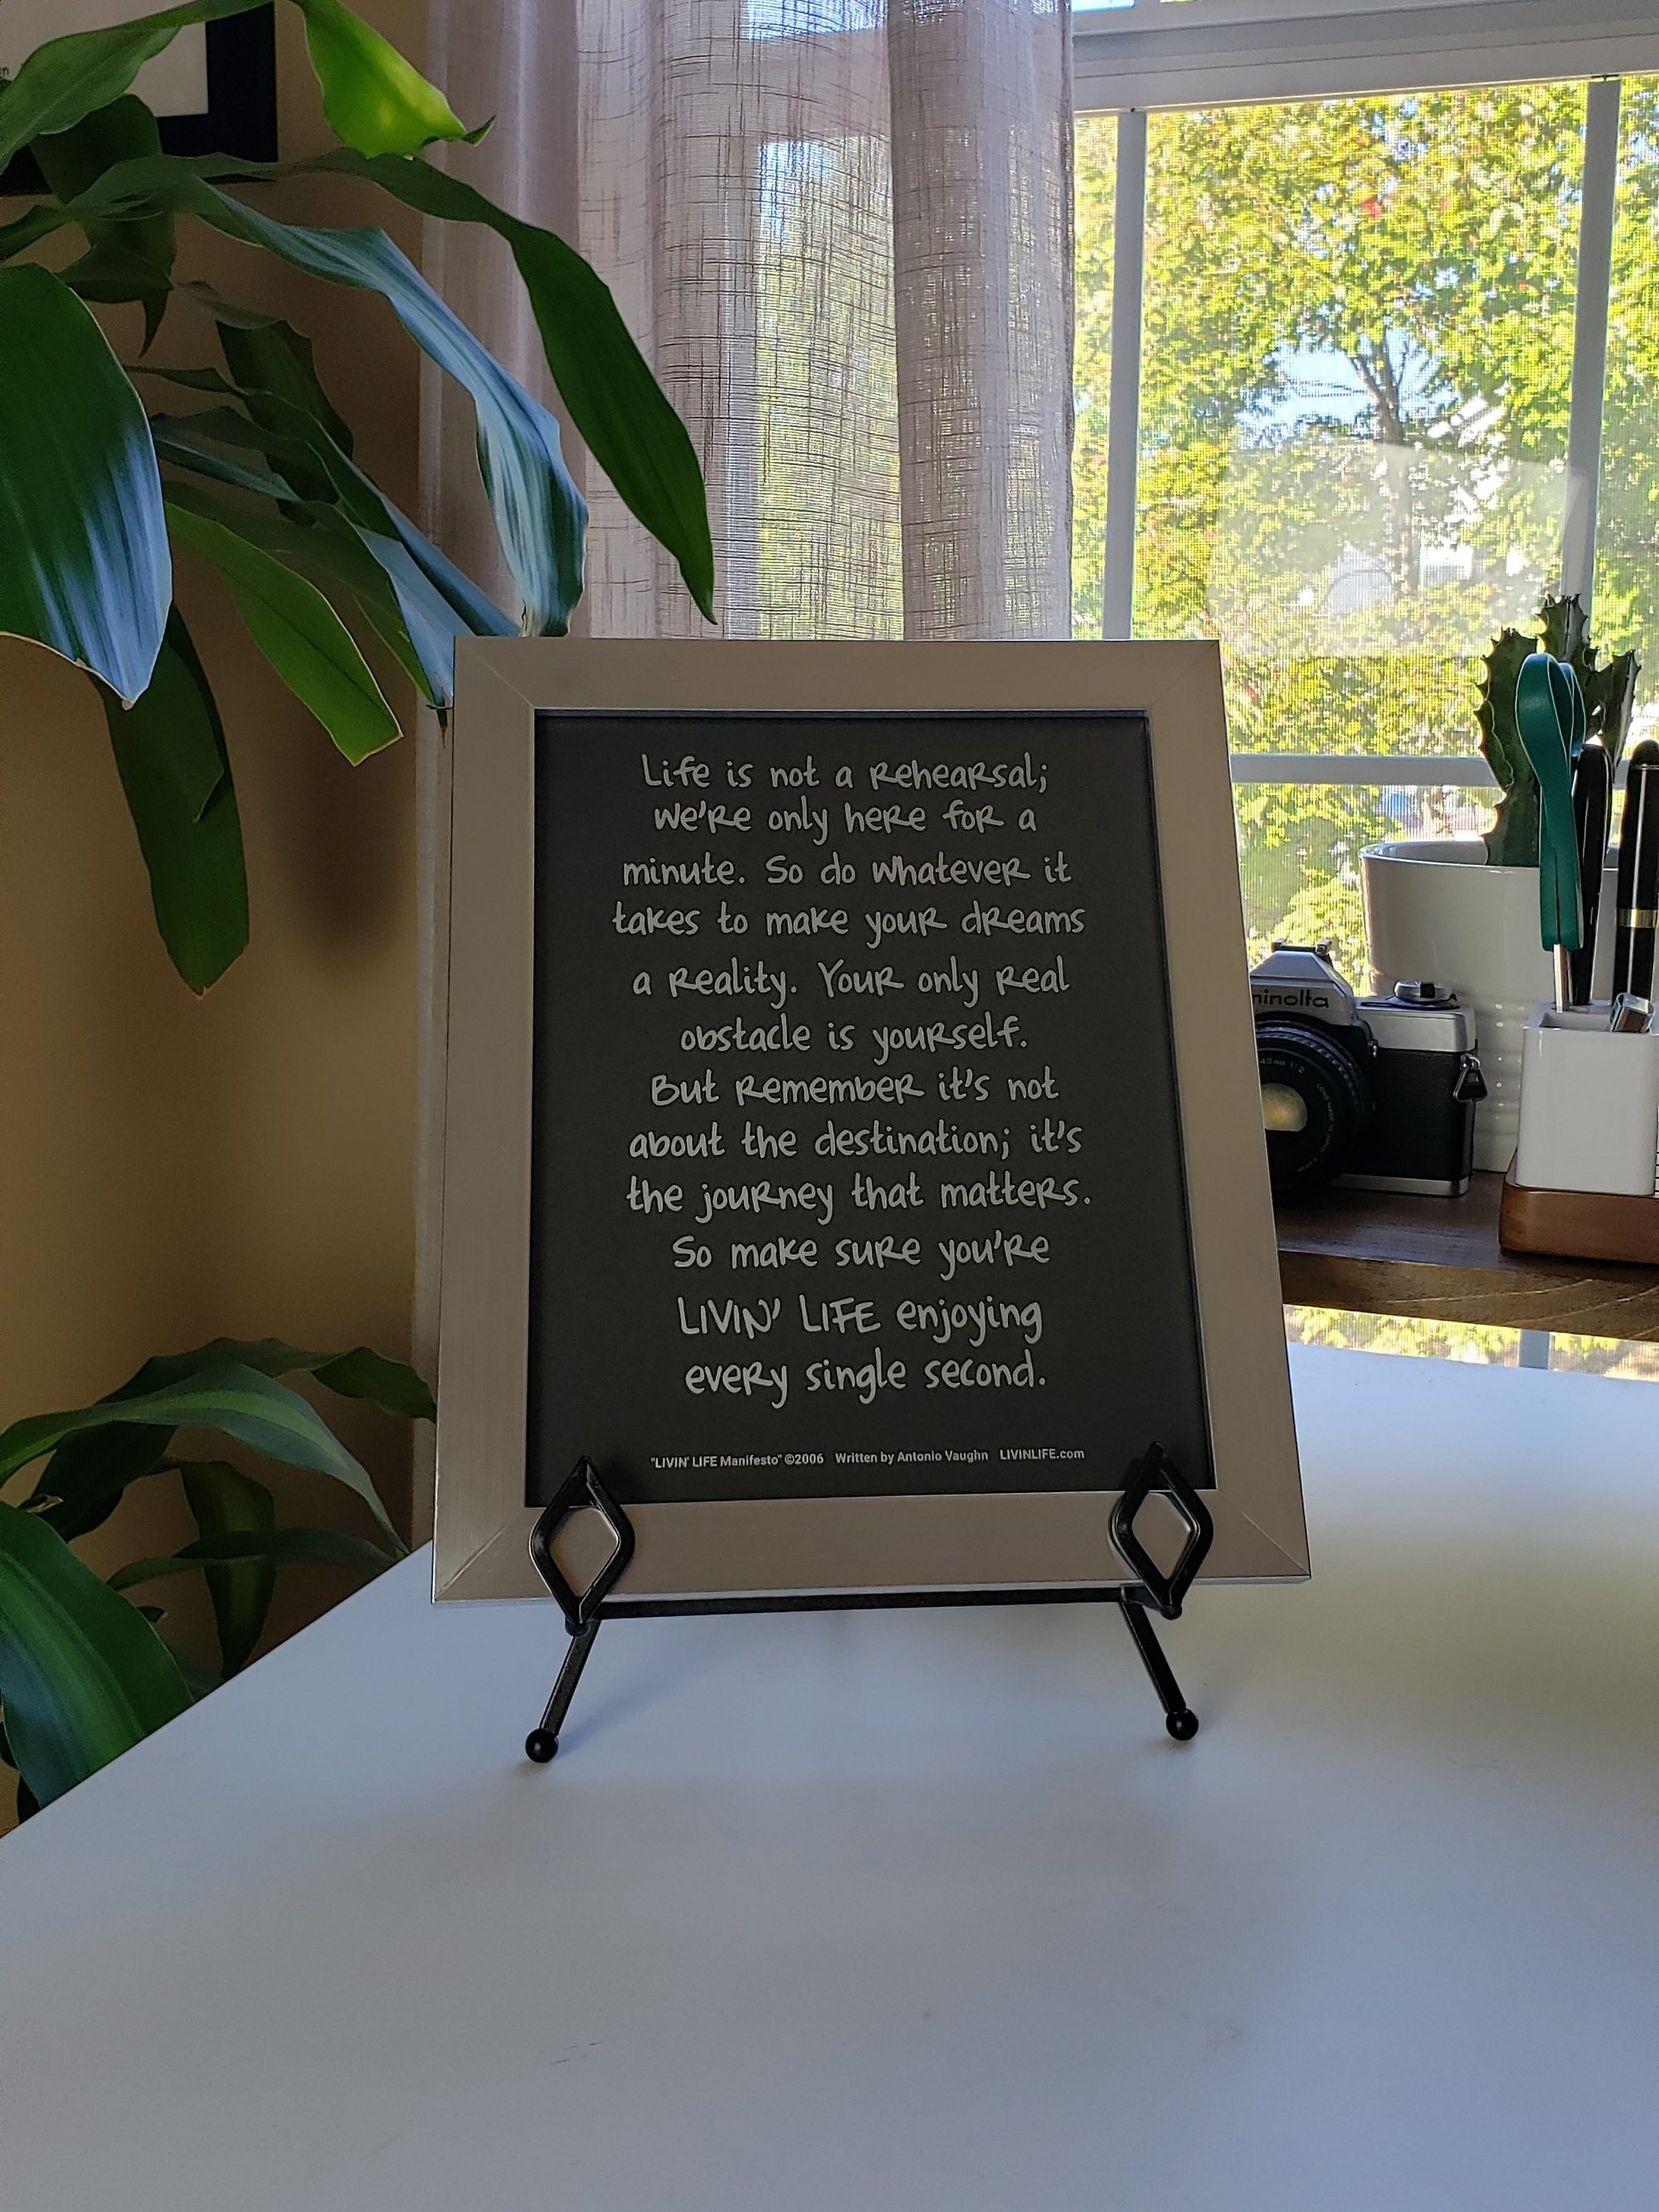 Life is not a rehearsal;
we're only here for a
minute. So do whatever it
takes to make your dreams
a reality. Your only real
obstacle is yourself.
But remember it's not
about the destination; it's
the journey that matters.
So make sure you're
LIVIN' LIFE enjoying
every single second.
"LIVIN' LIFE Manifesto" ©2006 Written by Antonio Vaughn LIVINLIFE.com
minolta
45mm 1:2